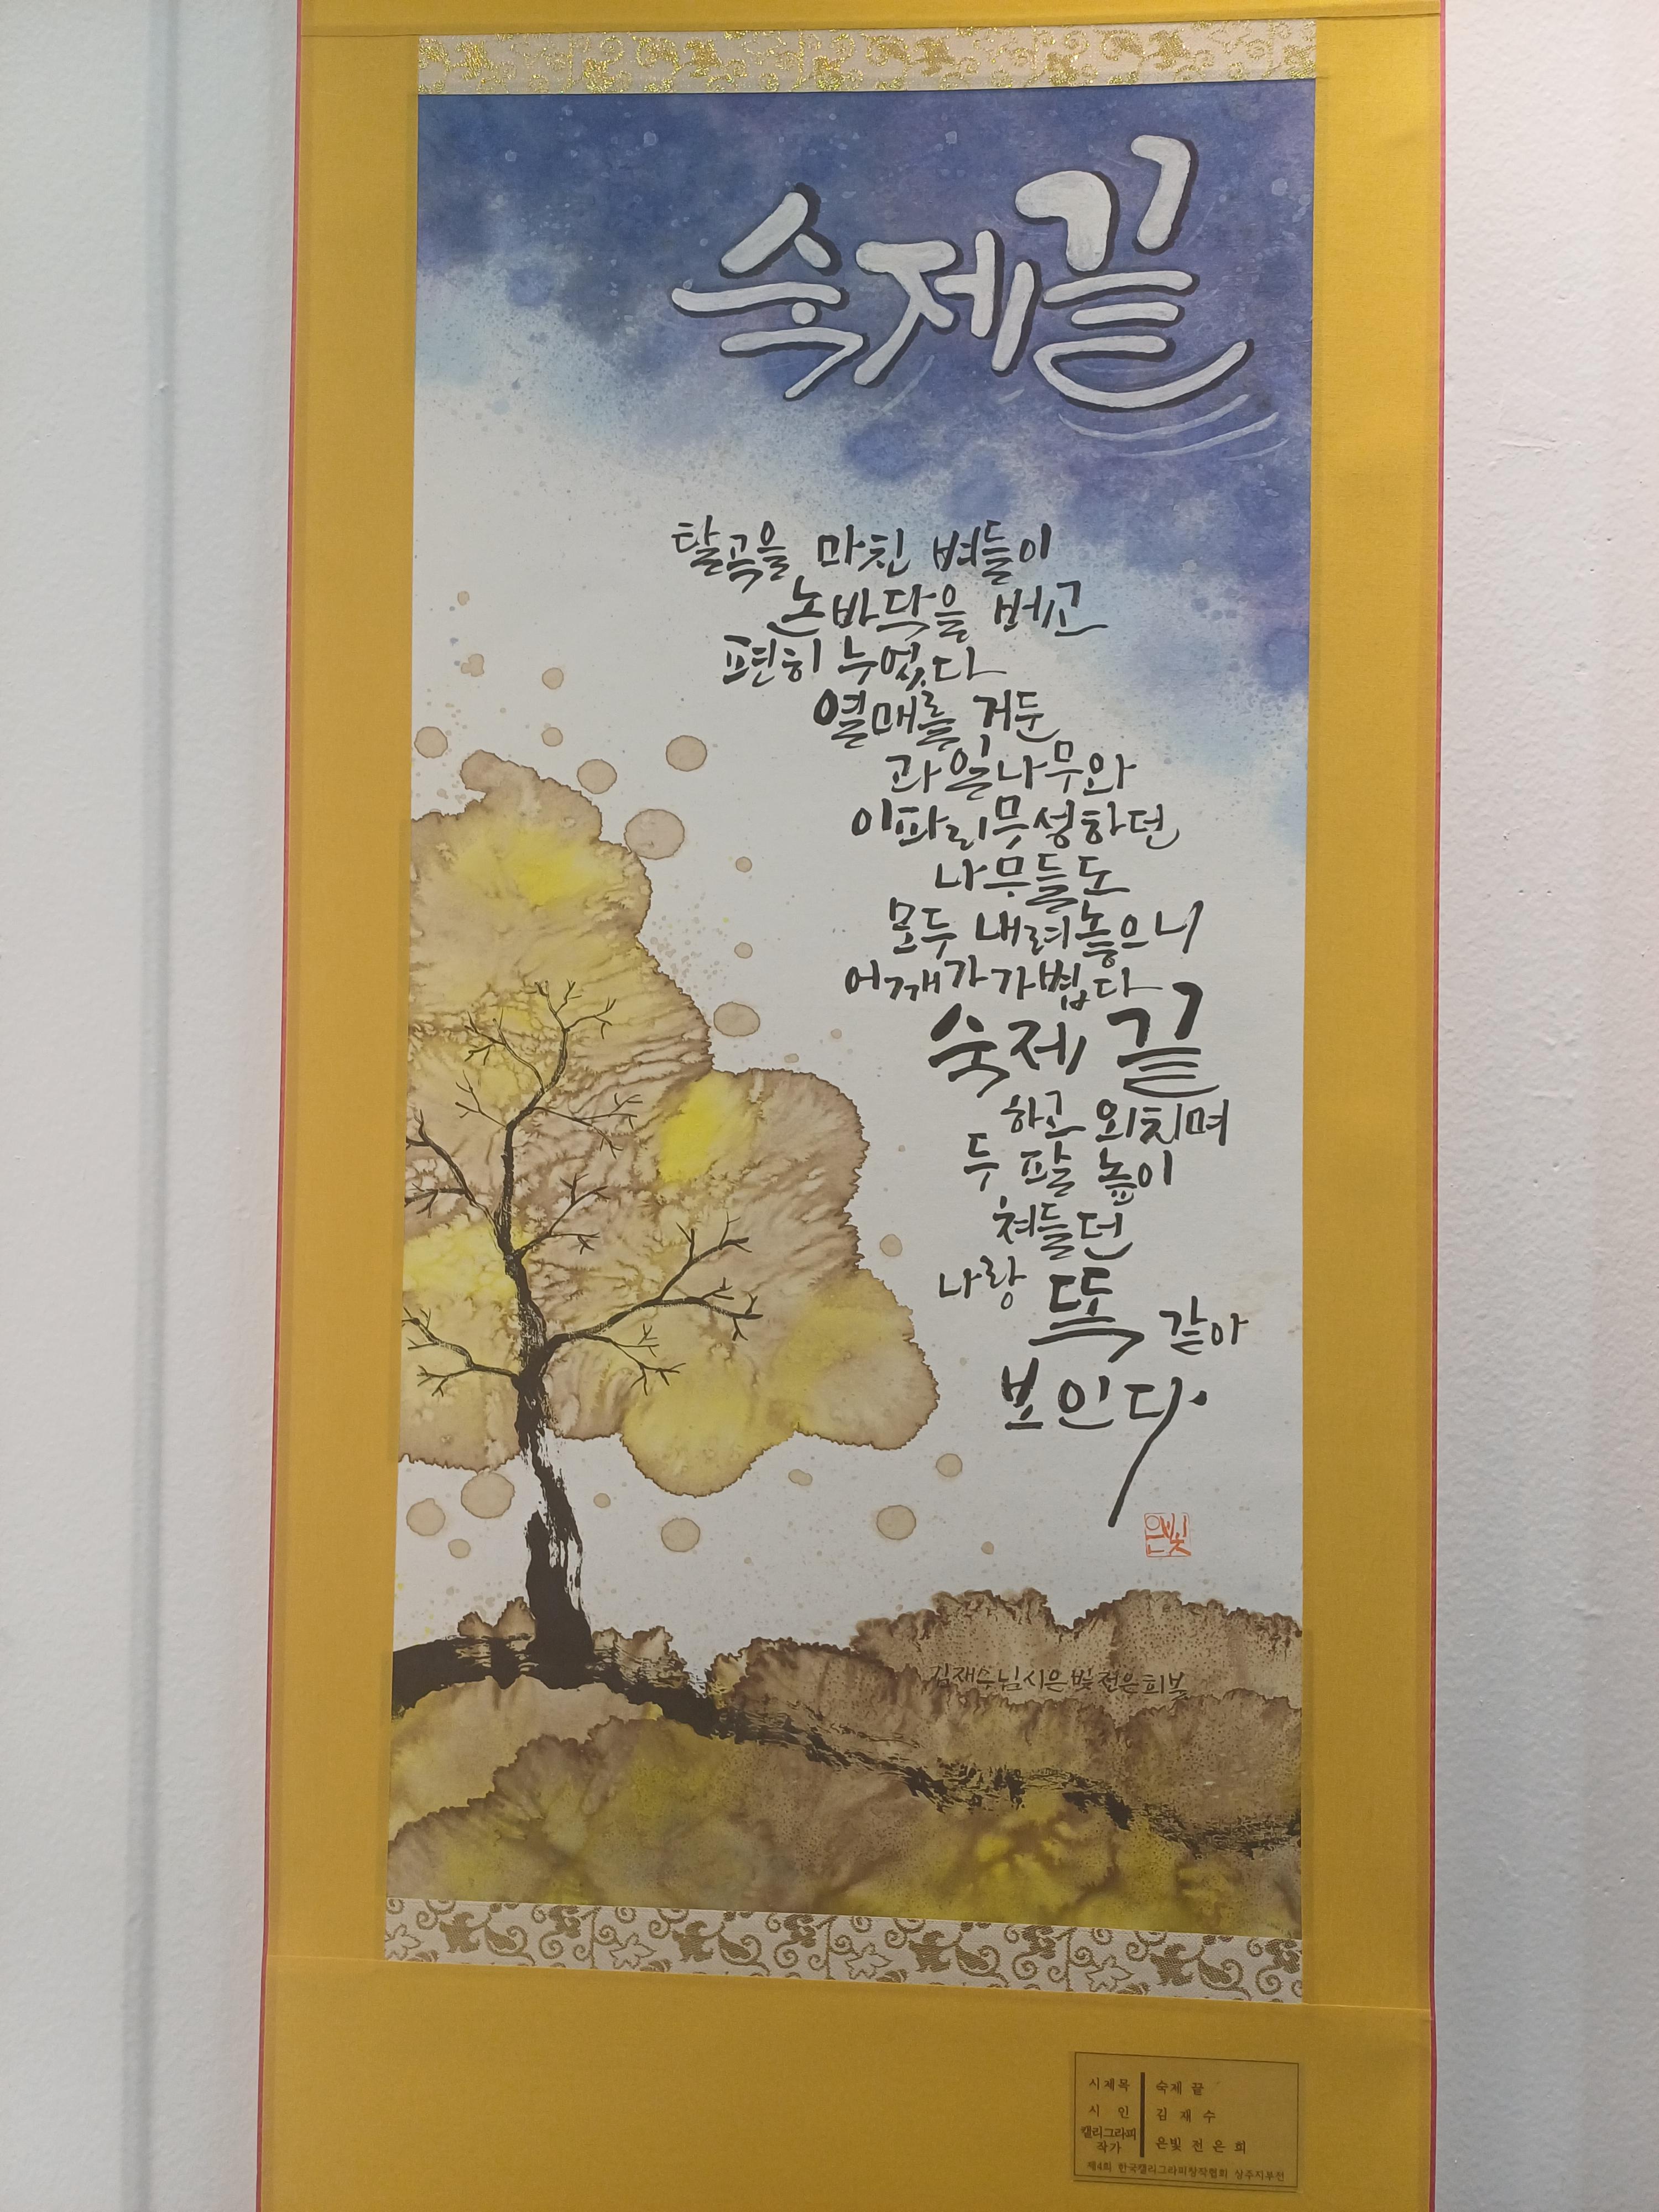 숙제끝
탈곡을 마친 벼들이
논바닥을 베고
편히 누었다
열매를 거둔
과일나무와
이파리무성하던
나무들도
모두 내려놓으니
어깨가 가볍다
숙제 끝
하고 외치며
두 팔 높이
쳐들던
나랑 똑 같아
보인다.
은빛
김재수님 시 은빛 전은희 붓
시제목 숙제 끝
시 인 김 재 수
캘리그라피 작가 은빛 전 은 희
제4회 한국캘리그라피창작협회 상주지부전